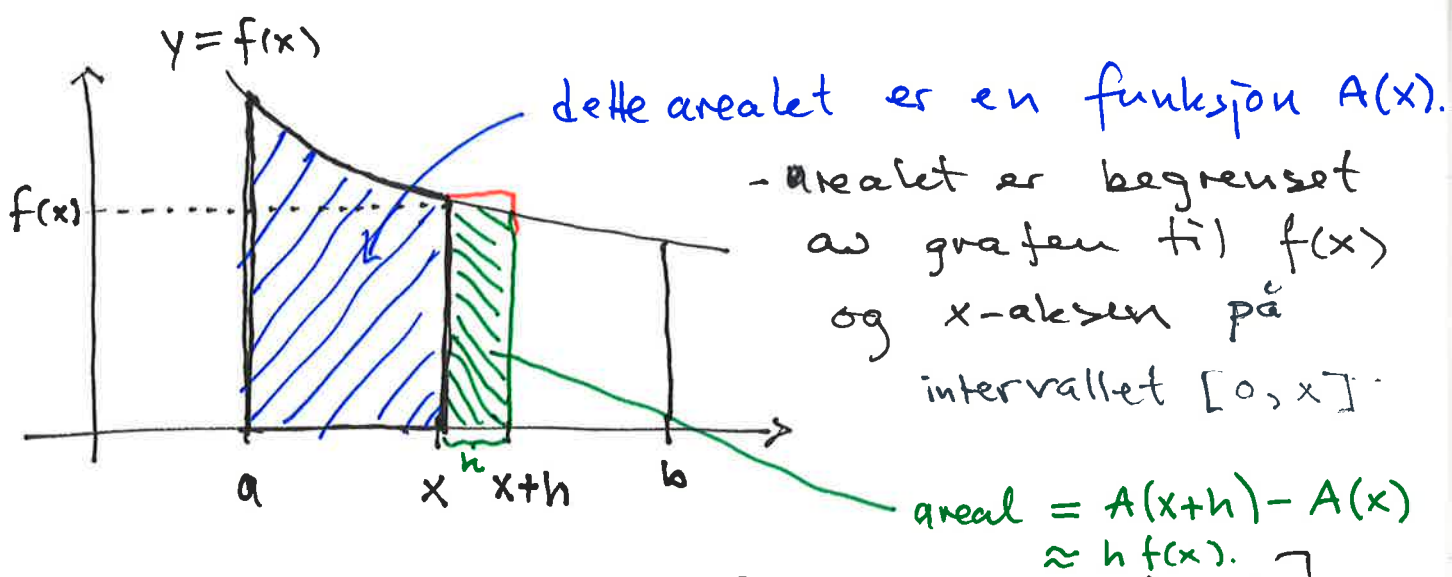 y = f(x)
dette arealet er en funksjon A(x).
- arealet er begrenset
av grafen til f(x)
og x-aksen på
intervallet [0, x].
f(x)
h
a x x+h b
areal = A(x+h) - A(x)
≈ h f(x).